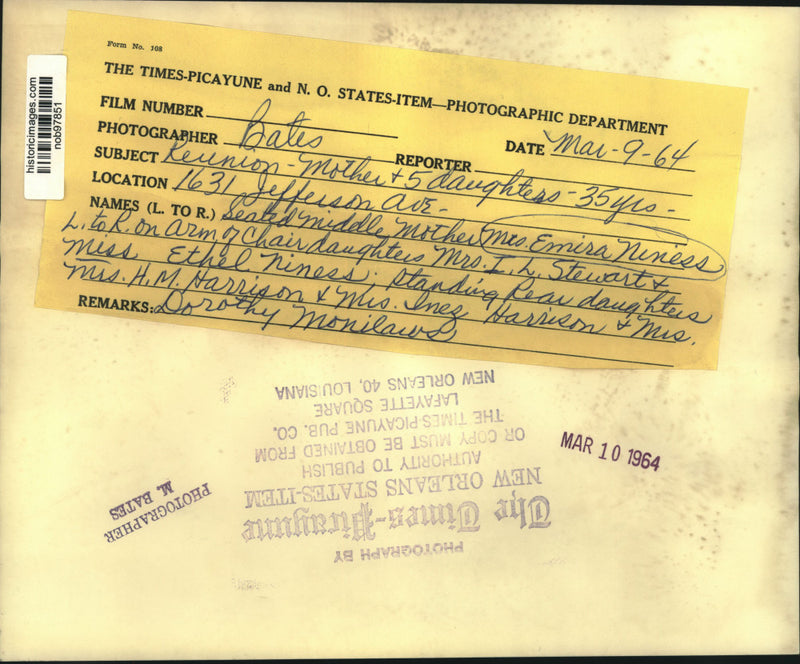 historicimages.com
nob97851
Form No. 108
THE TIMES-PICAYUNE and N. O. STATES-ITEM—PHOTOGRAPHIC DEPARTMENT
FILM NUMBER
PHOTOGRAPHER Bates REPORTER DATE Mar-9-64
SUBJECT Reunion - Mother + 5 daughters - 35 yrs -
LOCATION 1631 Jefferson Ave -
NAMES (L. TO R.) Seated middle Mother Mrs. Emira Niness
L. to R. on Arm of Chair daughters Mrs. I. L. Stewart &
Miss Ethel Niness; standing Rear daughters
Mrs. H. M. Harrison & Mrs. Inez Harrison & Mrs.
REMARKS: Dorothy Monilaws
MAR 10 1964
PHOTOGRAPH BY
The Times-Picayune
NEW ORLEANS STATES-ITEM
AUTHORITY TO PUBLISH
OR COPY MUST BE OBTAINED FROM
THE TIMES-PICAYUNE PUB. CO.
LAFAYETTE SQUARE
NEW ORLEANS 40, LOUISIANA
PHOTOGRAPHER
M. BATES